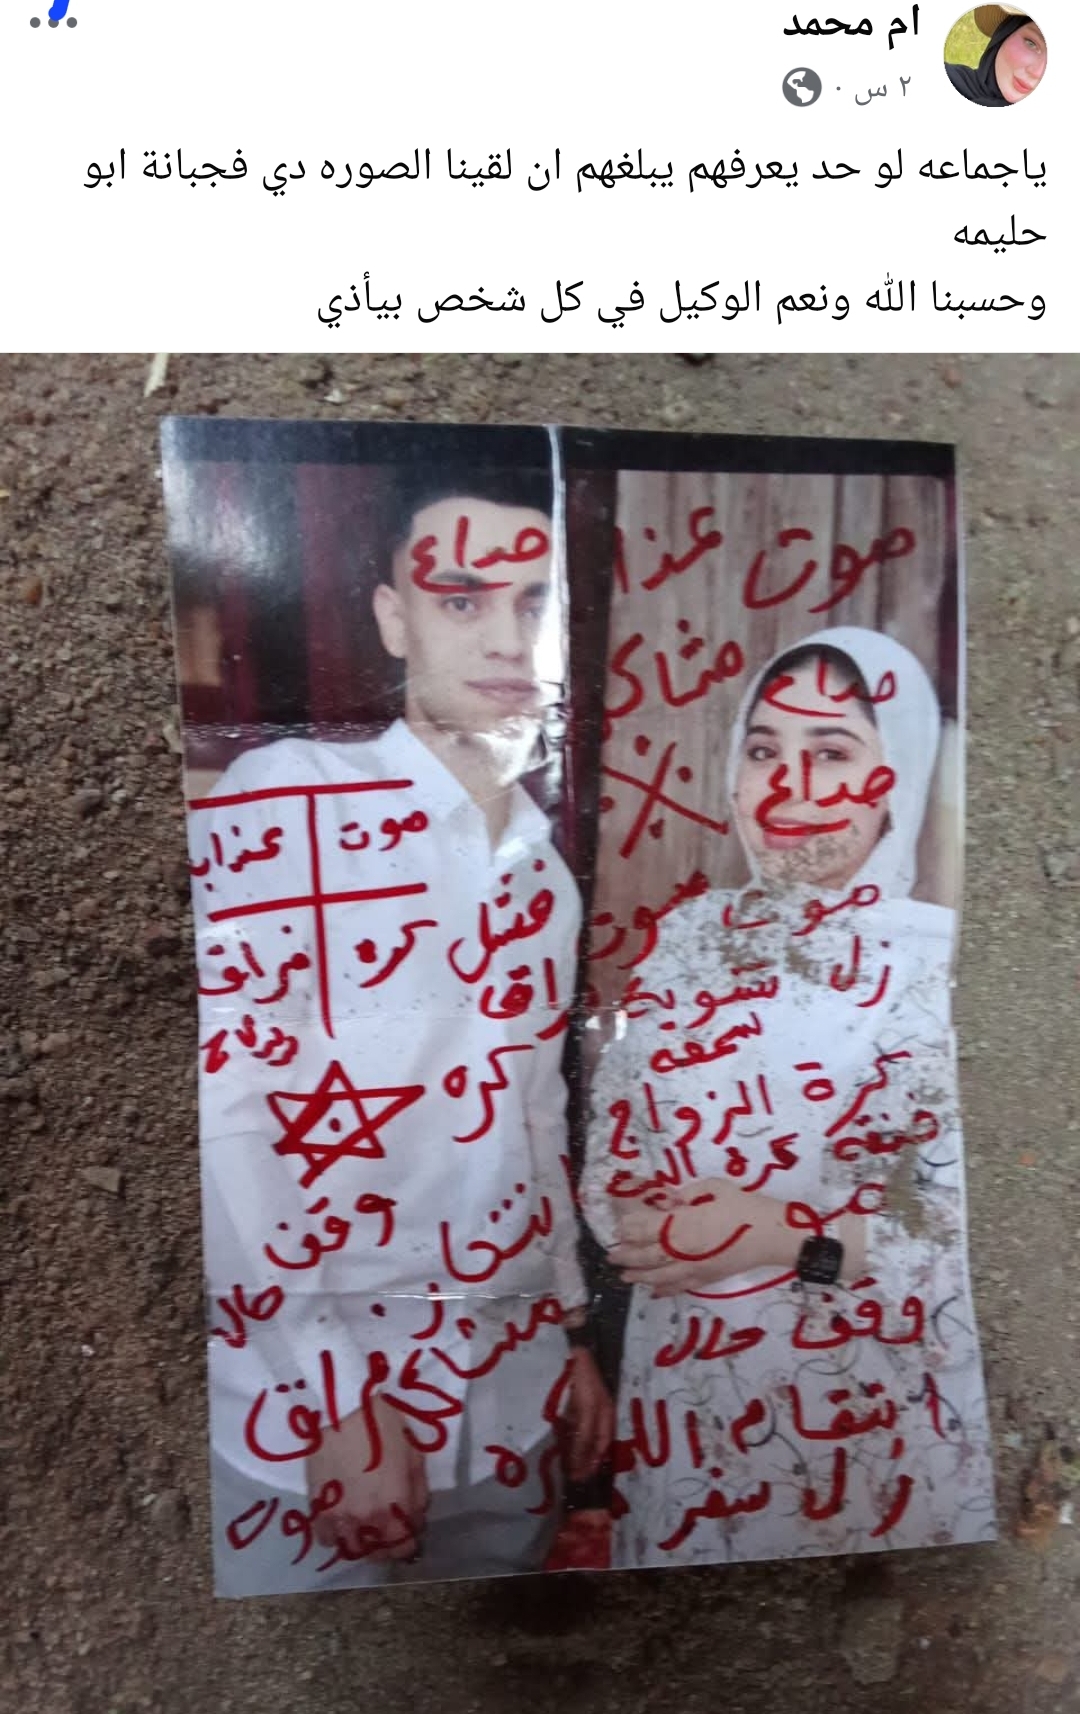 ام محمد
٢ س ·
ياجماعه لو حد يعرفهم يبلغهم ان لقينا الصوره دي فجبانة ابو
حليمه
وحسبنا الله ونعم الوكيل في كل شخص بيأذي
صداع
موت عذا
مشاكر
صداع
صداع
موت عذاب
كره فراق
فشل
موت موت
ذل تشويه
سمعه
راق
كره
كرة الزواج
خنقه كرة البيت
موت
وقف
حال
وقف حال
مشاكل
فراق
انتقام الله
كره
ذل سفر
موت
بعد